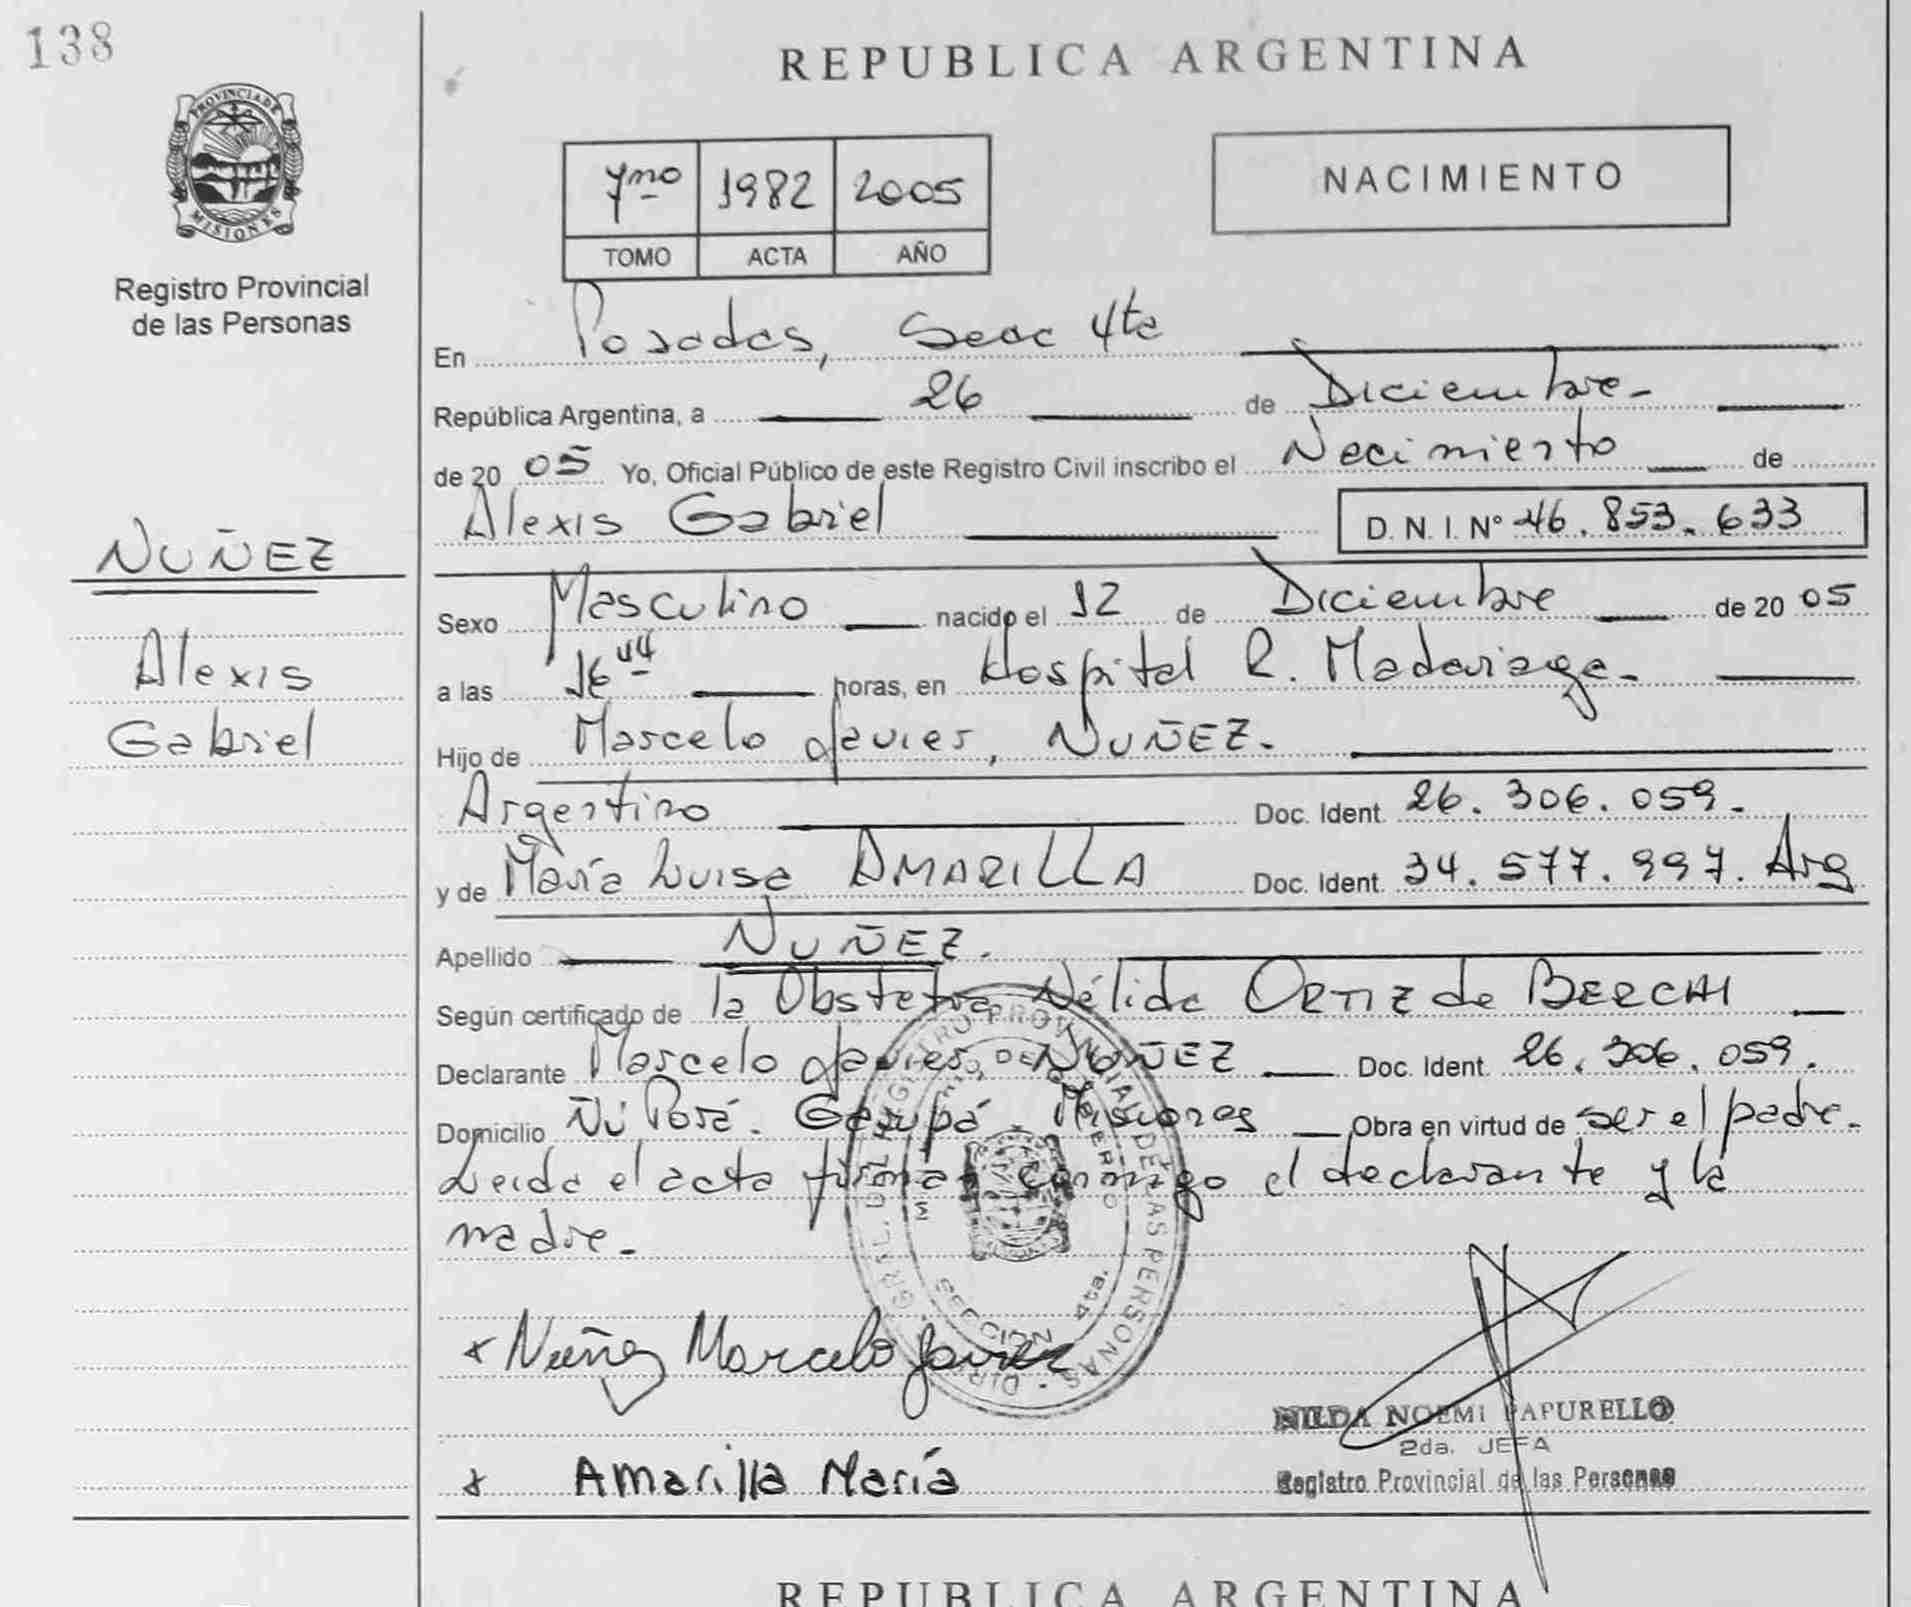 138
PROVINCIA DE
MISIONES
Registro Provincial
de las Personas
REPUBLICA ARGENTINA
7mo 1982 2005
TOMO ACTA AÑO
NACIMIENTO
En Posadas, Secc 4ta
República Argentina, a 26 de Diciembre.
de 20 05 Yo, Oficial Público de este Registro Civil inscribo el Nacimiento de
Alexis Gabriel D. N. I. Nº 46.853.633
NUÑEZ
Alexis
Gabriel
Sexo Masculino nacido el 12 de Diciembre de 20 05
a las 16 44 horas, en Hospital R. Madariaga.
Hijo de Marcelo Javier, NUÑEZ.
Argentino Doc. Ident. 26.306.059.
y de María Luisa AMARILLA Doc. Ident. 34.577.997. Arg
Apellido NUÑEZ.
Según certificado de la Obstetra Nélida ORTIZ de BERCHI
Declarante Marcelo Javier, NUÑEZ Doc. Ident. 26.306.059.
Domicilio Ñu Porá. Garupá Misiones Obra en virtud de ser el padre.
Leida el acta firman conmigo el declarante y la
madre.
SECCION 4ta.
x Nuñez Marcelo Javier
x Amarilla María
NILDA NOEMI PAPURELLO
2da. JEFA
Registro Provincial de las Personas
REPUBLICA ARGENTINA